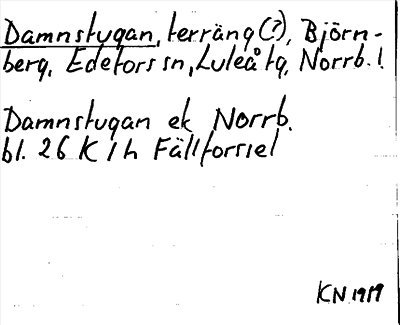 Damnstugan, terräng (?), Björn-
berg, Edefors sn, Luleå tg, Norrb. l.
Damnstugan ek Norrb.
bl. 26 K 1 h Fällforssel
KN 1919